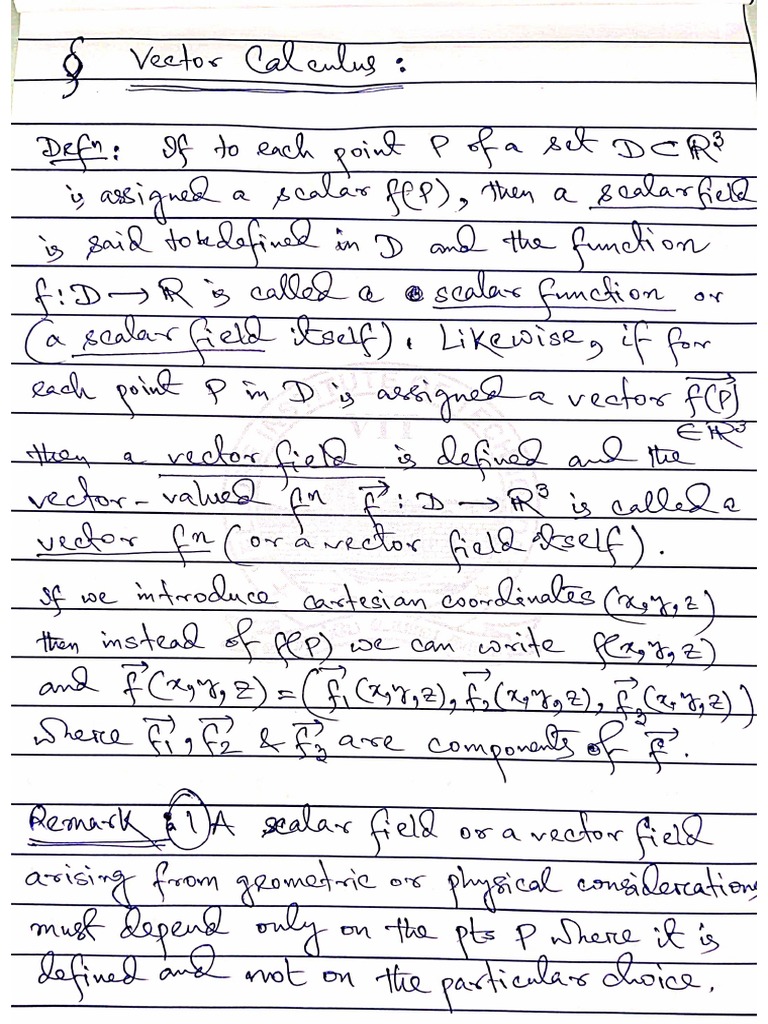 § Vector Calculus:
Defⁿ: If to each point P of a set D ⊂ ℝ³
is assigned a scalar f(P), then a scalar field
is said to be defined in D and the function
f: D → ℝ is called a scalar function or
(a scalar field itself). Likewise, if for
each point P in D is assigned a vector f⃗(P)
∈ ℝ³
then a vector field is defined and the
vector-valued fⁿ f⃗ : D → ℝ³ is called a
vector fⁿ (or a vector field itself).
If we introduce cartesian coordinates (x,y,z)
then instead of f(P) we can write f(x,y,z)
and f⃗(x,y,z) = (f⃗₁(x,y,z), f⃗₂(x,y,z), f⃗₃(x,y,z))
where f⃗₁, f⃗₂ & f⃗₃ are components of f⃗.
Remark: 1) A scalar field or a vector field
arising from geometric or physical considerations
must depend only on the pts P where it is
defined and not on the particular choice.